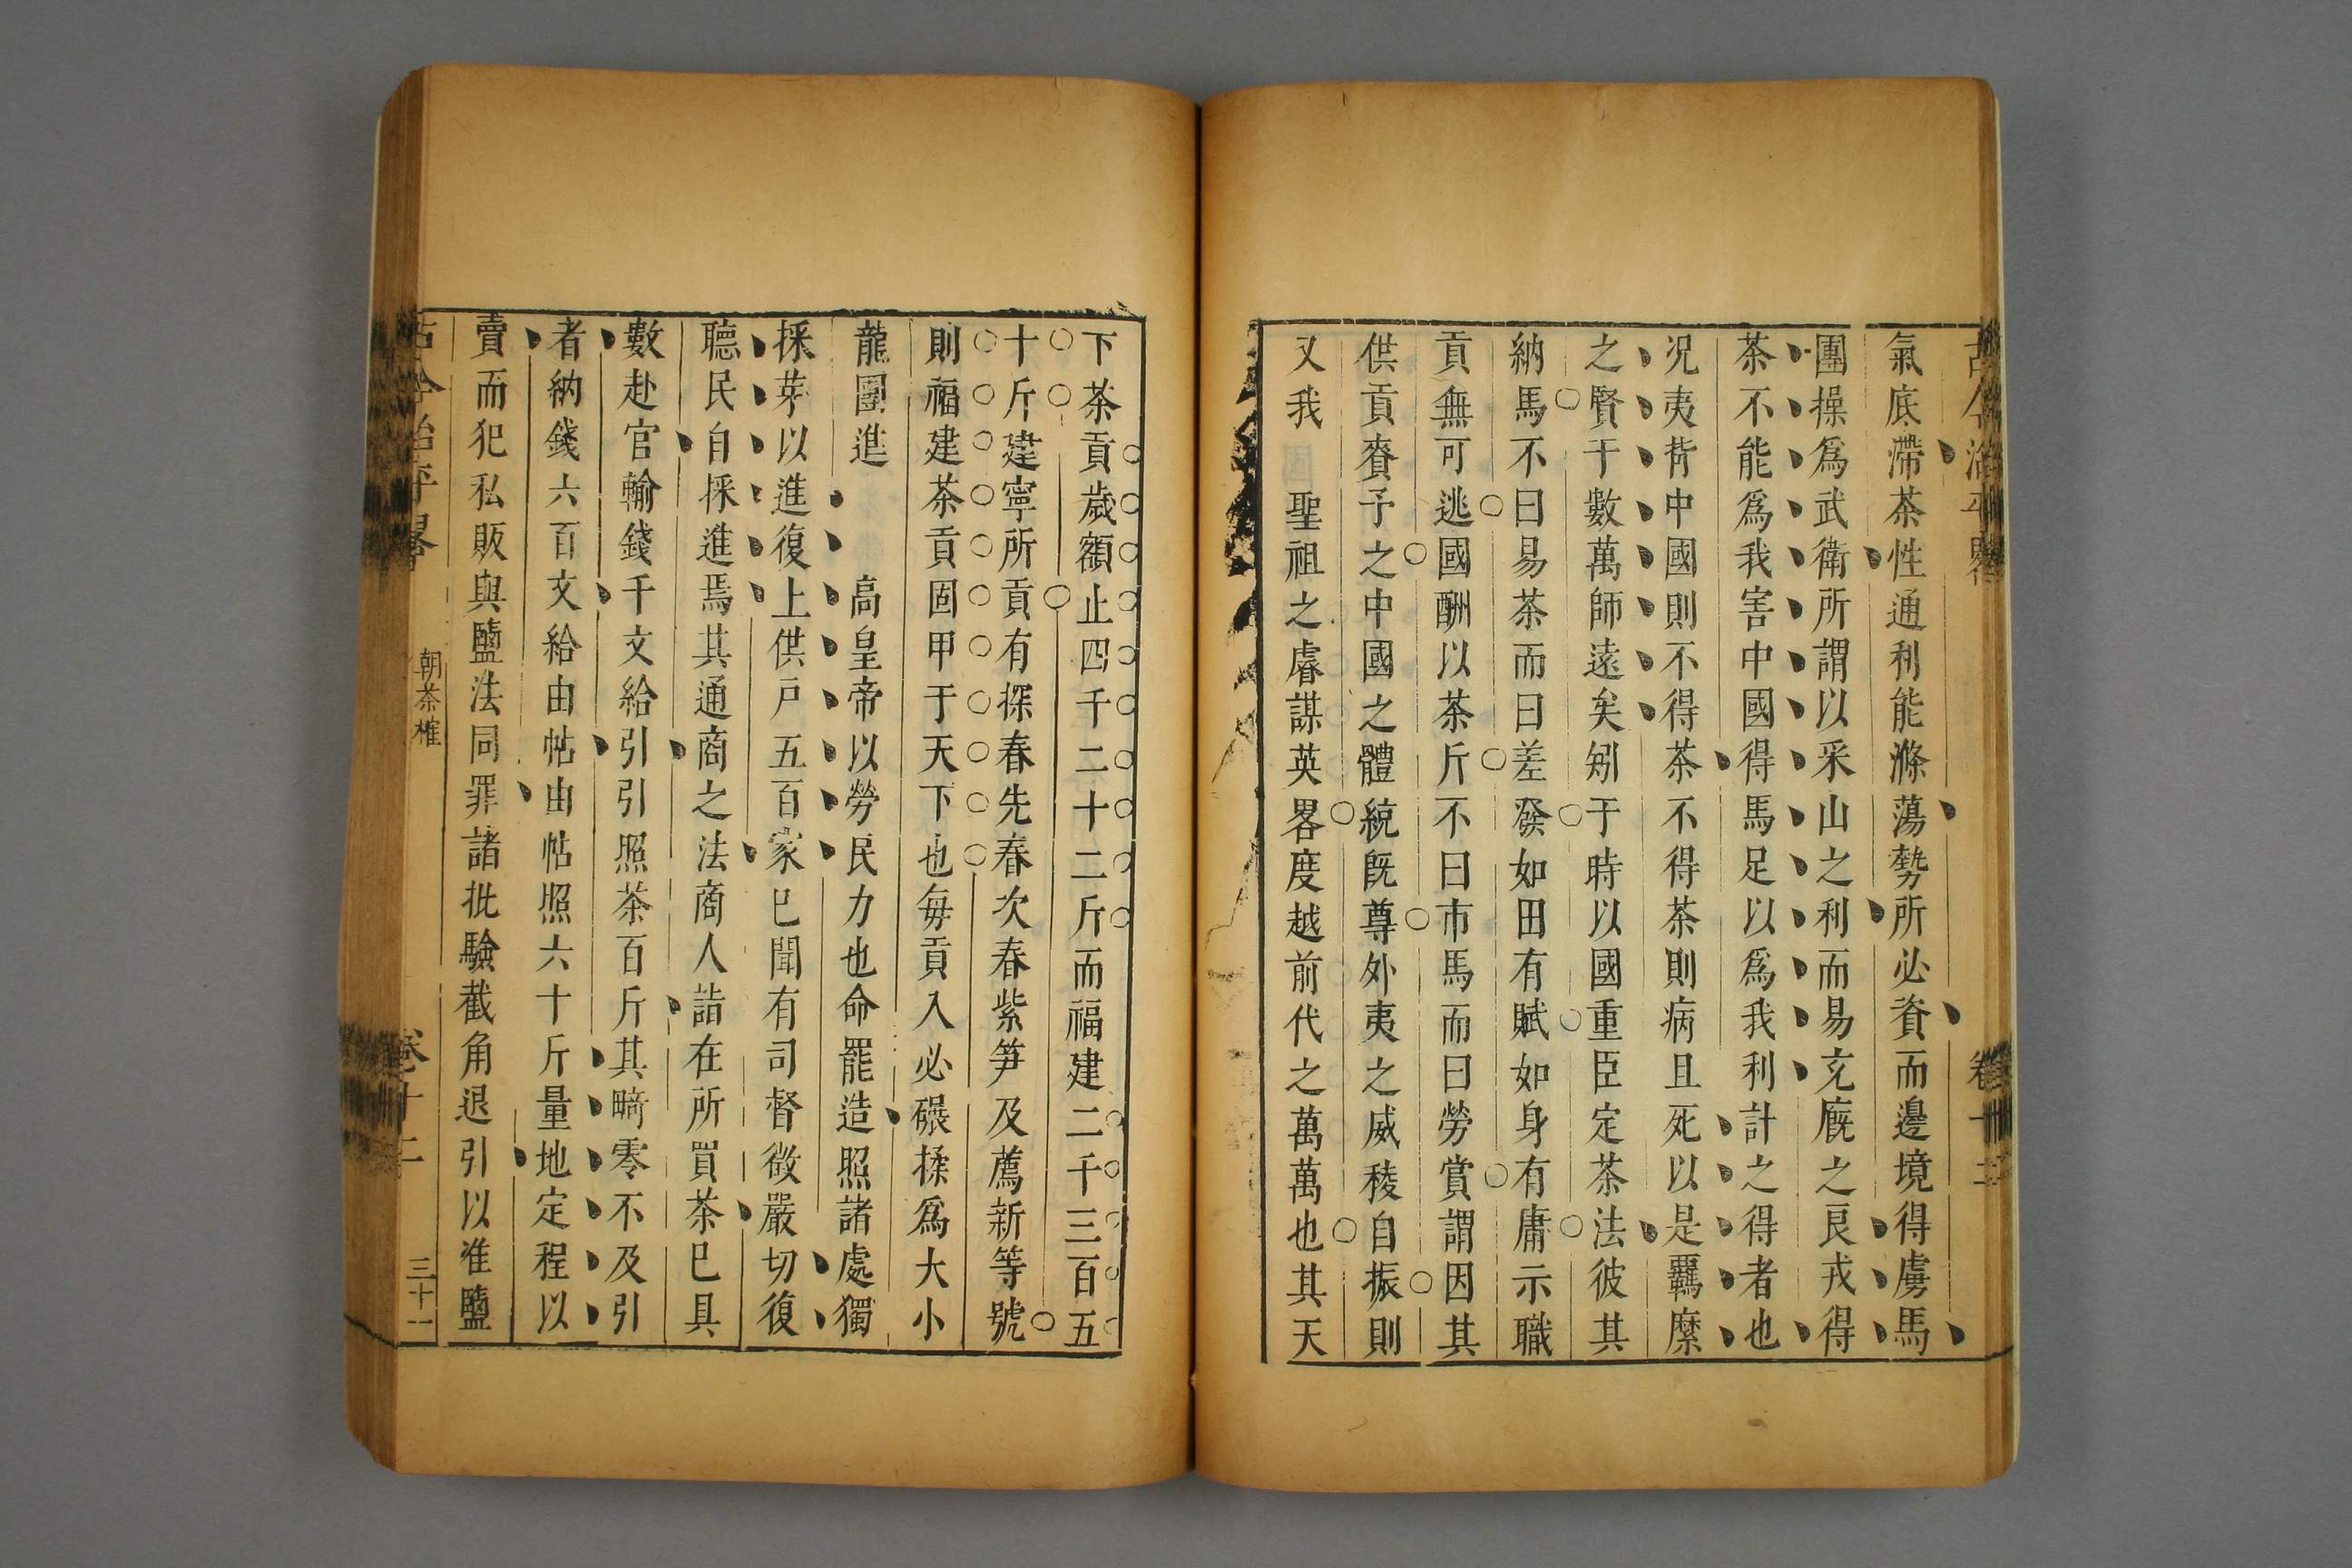 古今治平畧 卷十二
氣底滯茶性通利能滌蕩勢所必資而邊境得虜馬
團操爲武衛所謂以采山之利而易充廐之良戎得
茶不能爲我害中國得馬足以爲我利計之得者也
况夷背中國則不得茶不得茶則病且死以是羈縻
之賢于數萬師遠矣矧于時以國重臣定茶法彼其
納馬不曰易茶而曰差發如田有賦如身有庸示職
貢無可逃國酬以茶斤不曰市馬而曰勞賞謂因其
供貢賚予之中國之體統旣尊外夷之威稜自振則
又我 聖祖之睿謀英畧度越前代之萬萬也其天
下茶貢歲額止四千二十二斤而福建二千三百五
十斤建寧所貢有探春先春次春紫笋及薦新等號
則福建茶貢固甲于天下也每貢入必碾揉爲大小
龍團進 高皇帝以勞民力也命罷造照諸處獨
採芽以進復上供戶五百家已聞有司督徵嚴切復
聽民自採進焉其通商之法商人詣在所買茶已具
數赴官輸錢千文給引引照茶百斤其畸零不及引
者納錢六百文給由帖由帖照六十斤量地定程以
賣而犯私販與鹽法同罪諸批驗截角退引以准鹽
古今治平畧 朝茶榷 卷十二 三十一